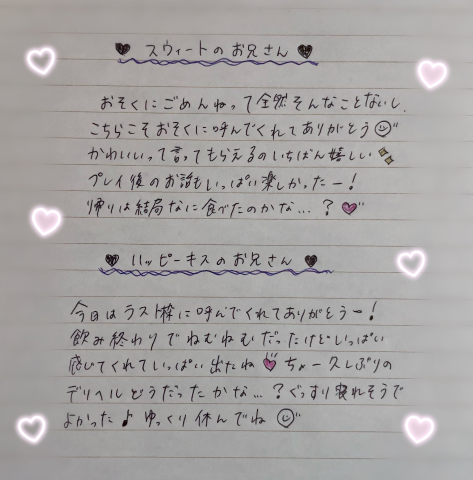 ♥ スウィートのお兄さん ♥
おそくにごめんねって全然そんなことないし、
こちらこそおそくに呼んでくれてありがとう☺
かわいいって言ってもらえるのいちばん嬉しい✨
プレイ後のお話もいっぱい楽しかったー!
帰りは結局なに食べたのかな…?♥
♥ ハッピーキスのお兄さん ♥
今日はラスト枠に呼んでくれてありがとうー!
飲み終わりでねむねむだったけどいっぱい
感じてくれていっぱい出たね♥ ちょー久しぶりの
デリヘルどうだったかな…?ぐっすり寝れそうで
よかった♪ ゆっくり休んでね☺